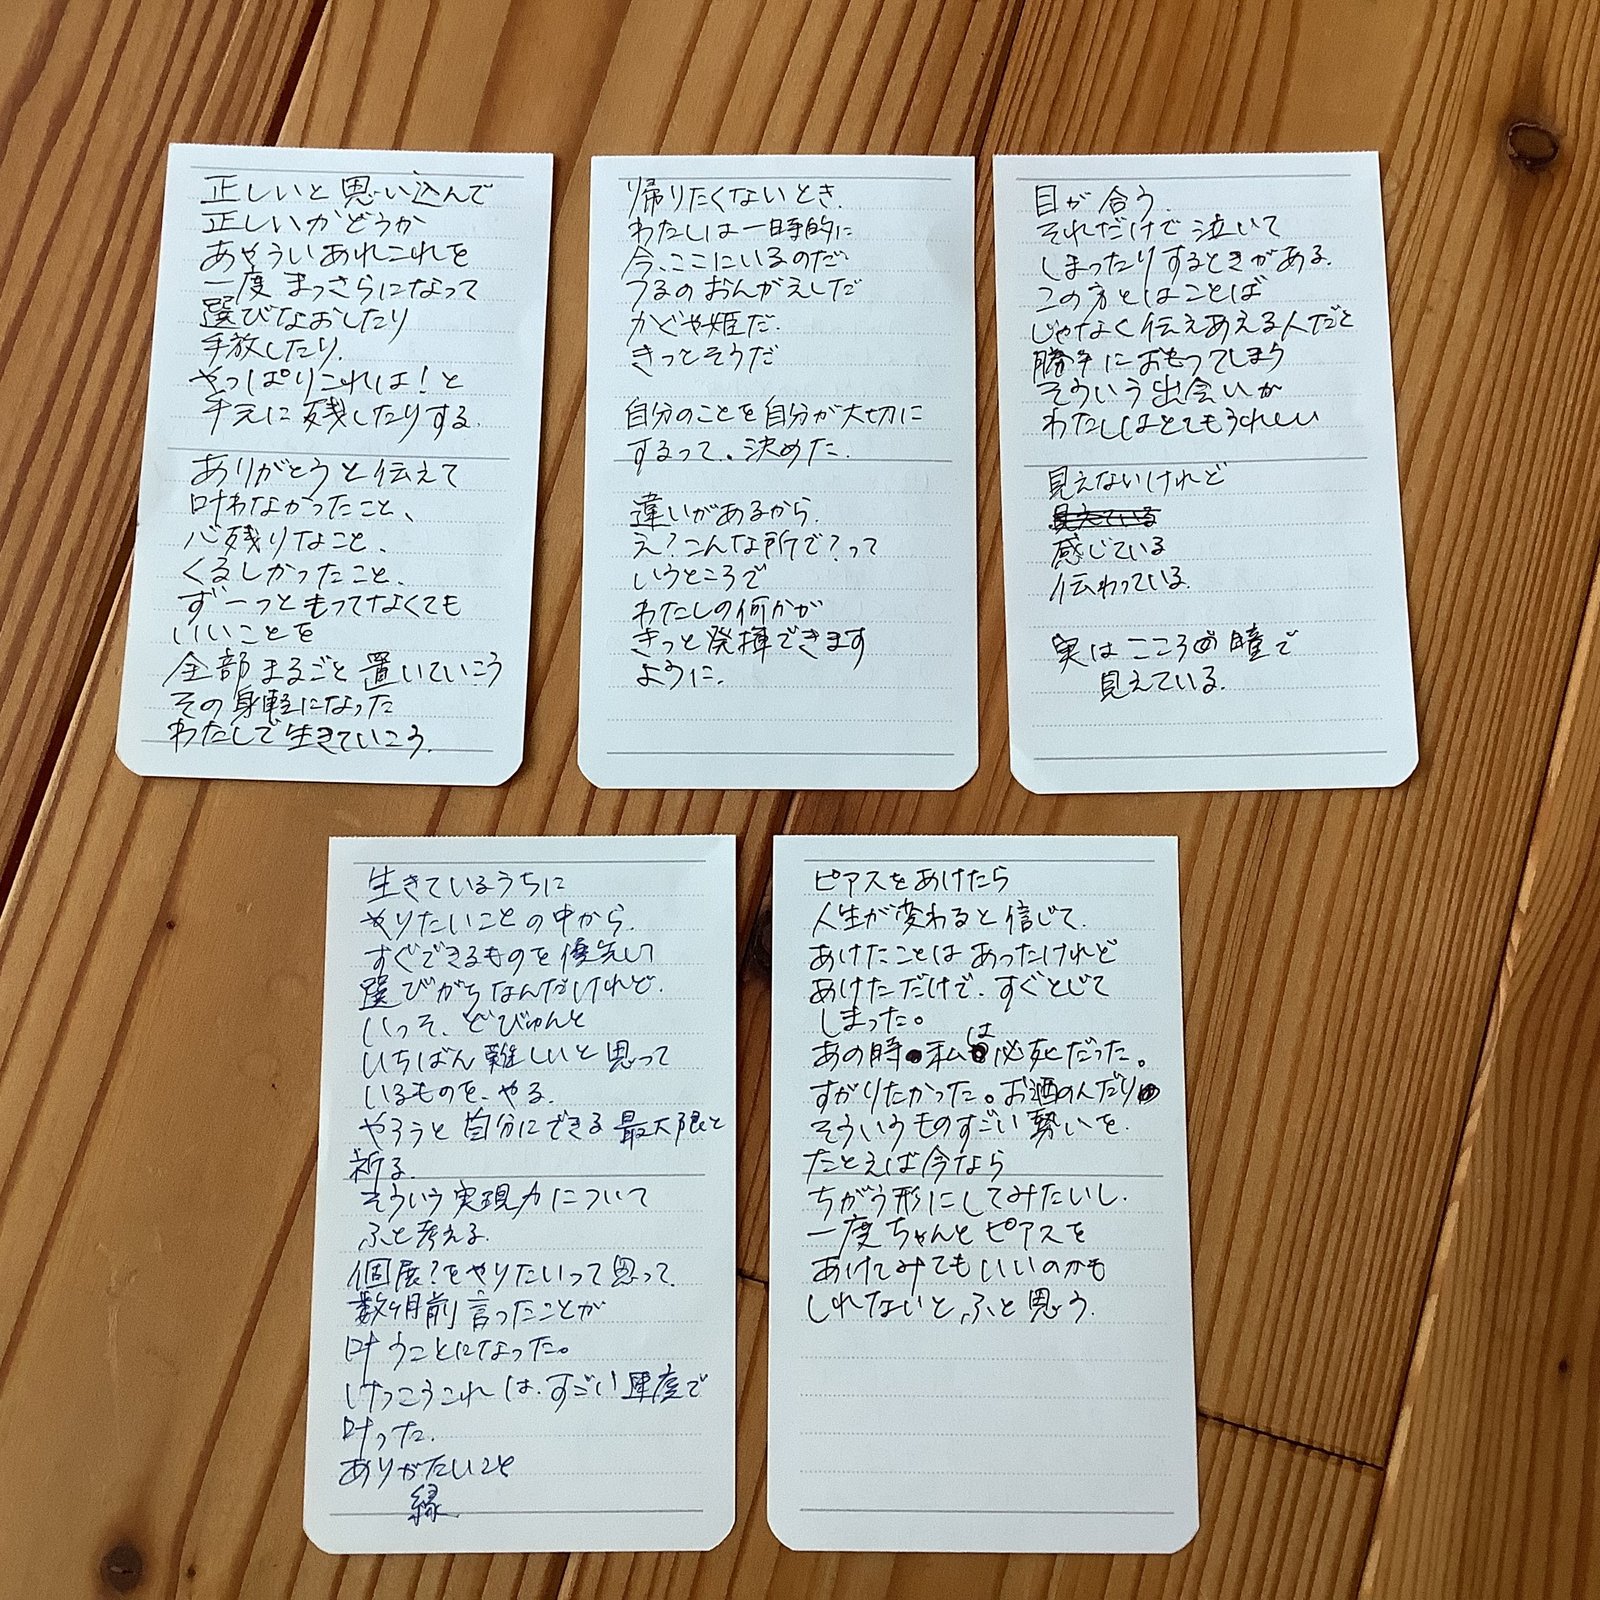 正しいと思い込んで
正しいかどうか
あやういあれこれを
一度まっさらになって
選びなおしたり
手放したり、
やっぱりこれは!と
手元に残したりする。
ありがとうと伝えて
叶わなかったこと、
心残りなこと、
くるしかったこと、
ずーっともってなくても
いいことを
全部まるごと置いていこう
その身軽になった
わたしで生きていこう。
帰りたくないとき、
わたしは一時的に
今、ここにいるのだ
つるのおんがえしだ
かぐや姫だ。
きっとそうだ
自分のことを自分が大切に
するって、決めた。
違いがあるから、
え?こんな所で?って
いうところで
わたしの何かが
きっと発揮できます
ように。
目が合う。
それだけで泣いて
しまったりするときがある。
この方とはことば
じゃなく伝えあえる人だと
勝手におもってしまう
そういう出会いが
わたしはとてもうれしい
見えないけれど
見えている
感じている
伝わっている。
実はこころの瞳で
見えている。
生きているうちに
やりたいことの中から、
すぐできるものを優先して
選びがちなんだけれど、
いっそ、どびゅんと
いちばん難しいと思って
いるものを、やる。
やろうと自分にできる最大限と
祈る。
そういう実現力について
ふと考える。
個展?をやりたいって思って、
数ヶ月前言ったことが
叶うことになった。
けっこうこれは、すごい速度で
叶った。
ありがたいこと
縁
ピアスをあけたら
人生が変わると信じて、
あけたことはあったけれど
あけただけで、すぐとじて
しまった。
あの時私は必死だった。
すがりたかった。お酒のんだり
そういうものすごい勢いを、
たとえば今なら
ちがう形にしてみたいし、
一度ちゃんとピアスを
あけてみてもいいのかも
しれないと、ふと思う。